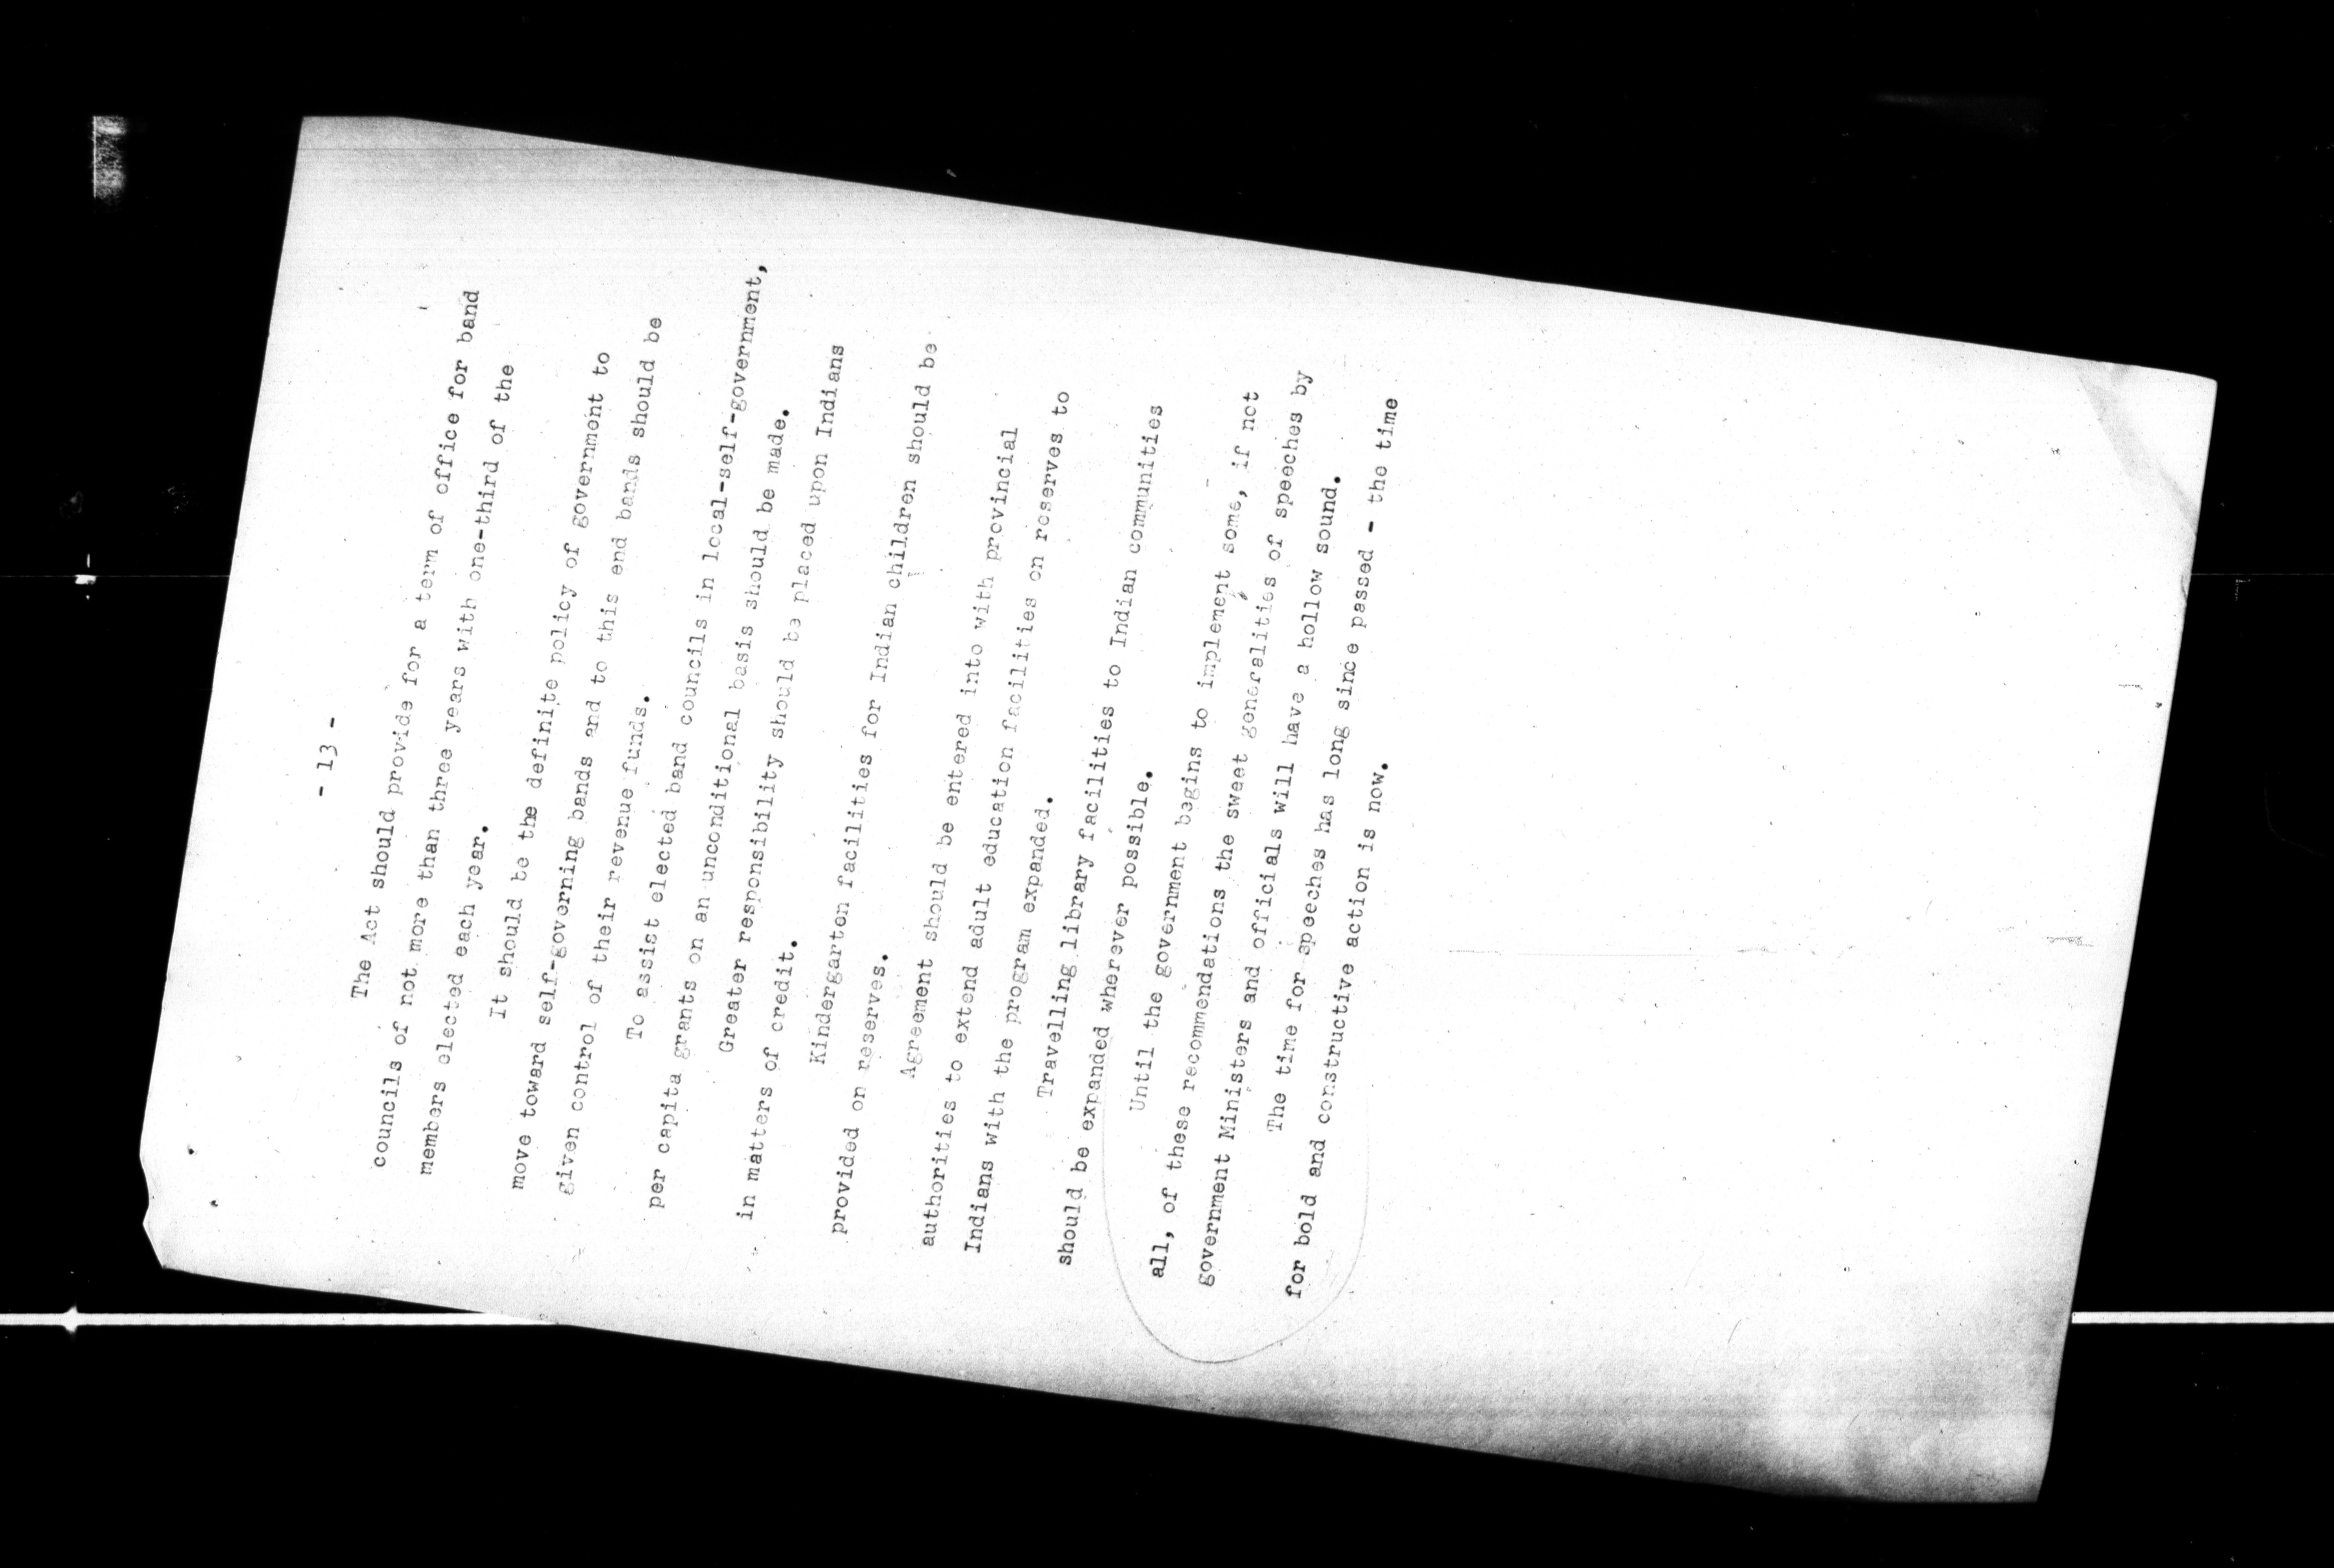 - 13 -
The Act should provide for a term of office for band
councils of not more than three years with one-third of the
members elected each year.
It should be the definite policy of government to
move toward self-governing bands and to this end bands should be
given control of their revenue funds.
To assist elected band councils in local-self-government,
per capita grants on an unconditional basis should be made.
Greater responsibility should be placed upon Indians
in matters of credit.
Kindergarten facilities for Indian children should be
provided on reserves.
Agreement should be entered into with provincial
authorities to extend adult education facilities on reserves to
Indians with the program expanded.
Travelling library facilities to Indian communities
should be expanded wherever possible.
Until the government begins to implement some, if not
all, of these recommendations the sweet generalities of speeches by
government Ministers and officials will have a hollow sound.
The time for speeches has long since passed - the time
for bold and constructive action is now.